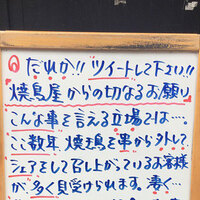 だれか!! ツイートして下さい!!
焼鳥屋からの切なるお願い
こんな事を言える立場では…
ここ数年 焼き鳥を串から外して
シェアをして召し上がっているお客様
が多く見受けられます。凄く…